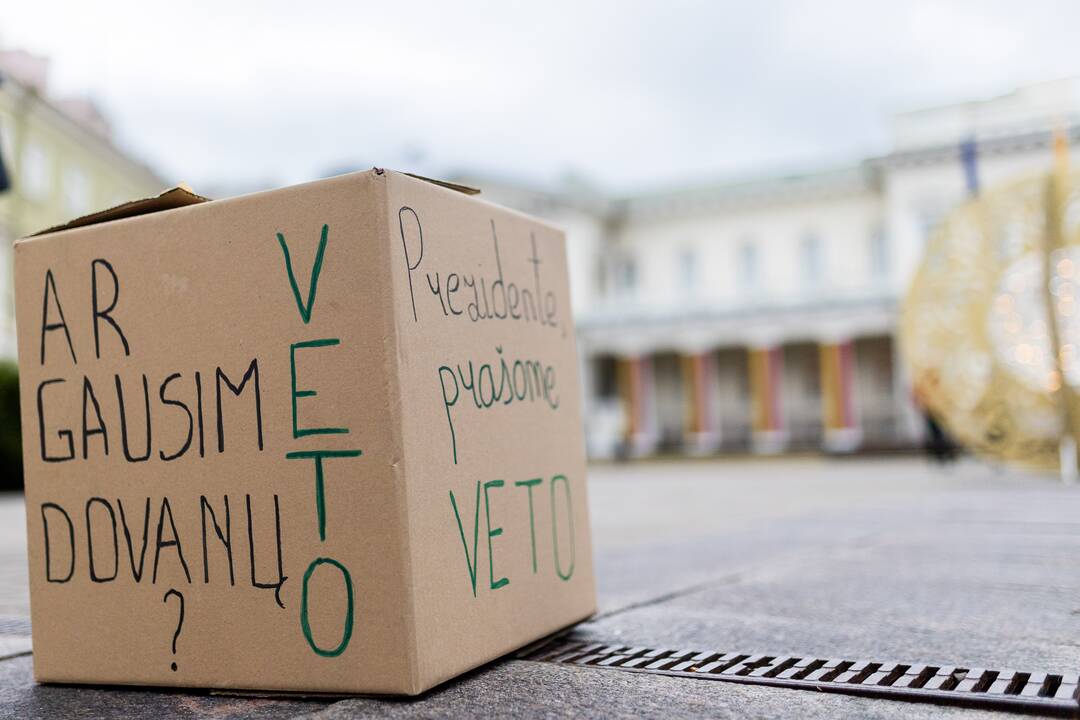 AR
GAUSIM
DOVANŲ
?
VETO
Prezidente,
prašome
VETO